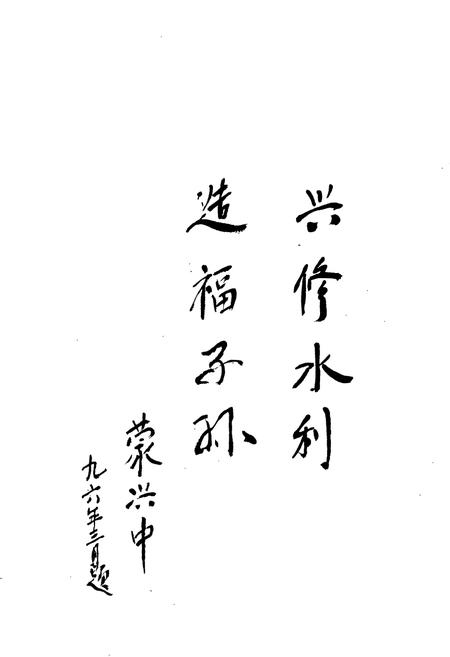 兴修水利
造福子孙
蒙兴中
九六年三月题